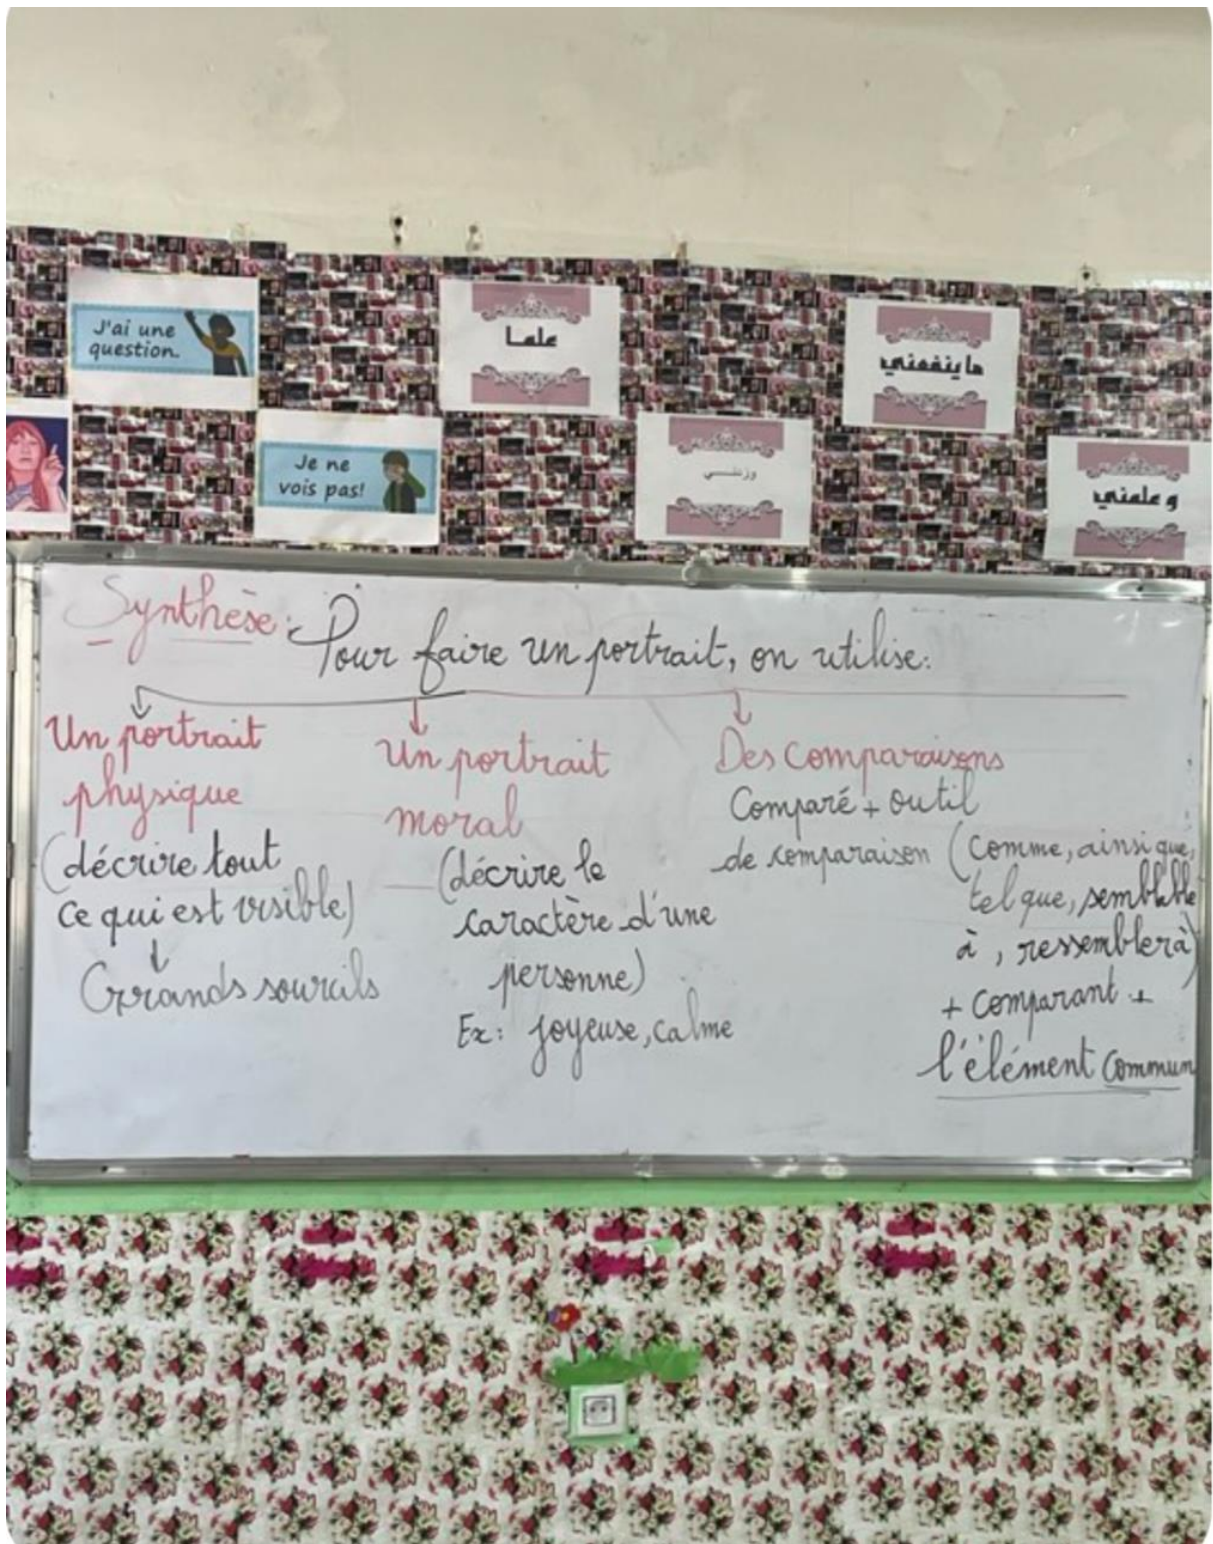 J'ai une
question.
Je ne
vois pas!
علما
وزدني
ما ينفعني
وعلمني
Synthèse: Pour faire un portrait, on utilise:
Un portrait
physique
(décrire tout
ce qui est visible)
Grands sourcils
Un portrait
moral
(décrire le
caractère d'une
personne)
Ex: joyeuse, calme
Des comparaisons
Comparé + outil
de comparaison (comme, ainsi que,
tel que, semblable
à, ressembler à)
+ comparant +
l'élément commun